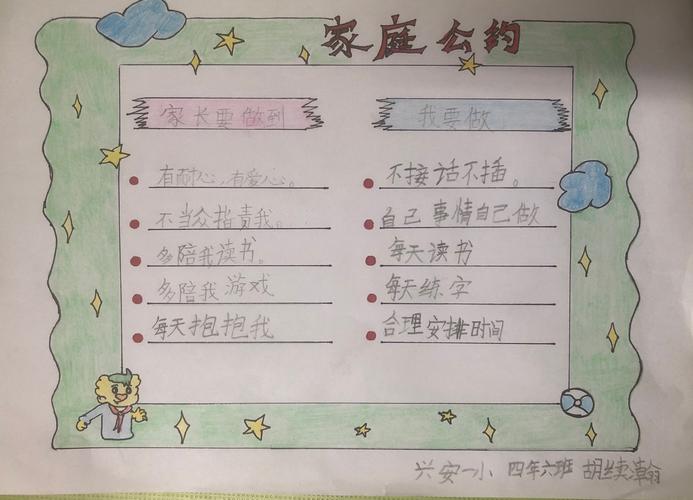 家庭公约
家长要做到
有耐心,有爱心。
不当众指责我。
多陪我读书。
多陪我游戏
每天抱抱我
我要做
不接话不插。
自己事情自己做
每天读书
每天练字
合理安排时间
兴安一小 四年六班 胡续瀚